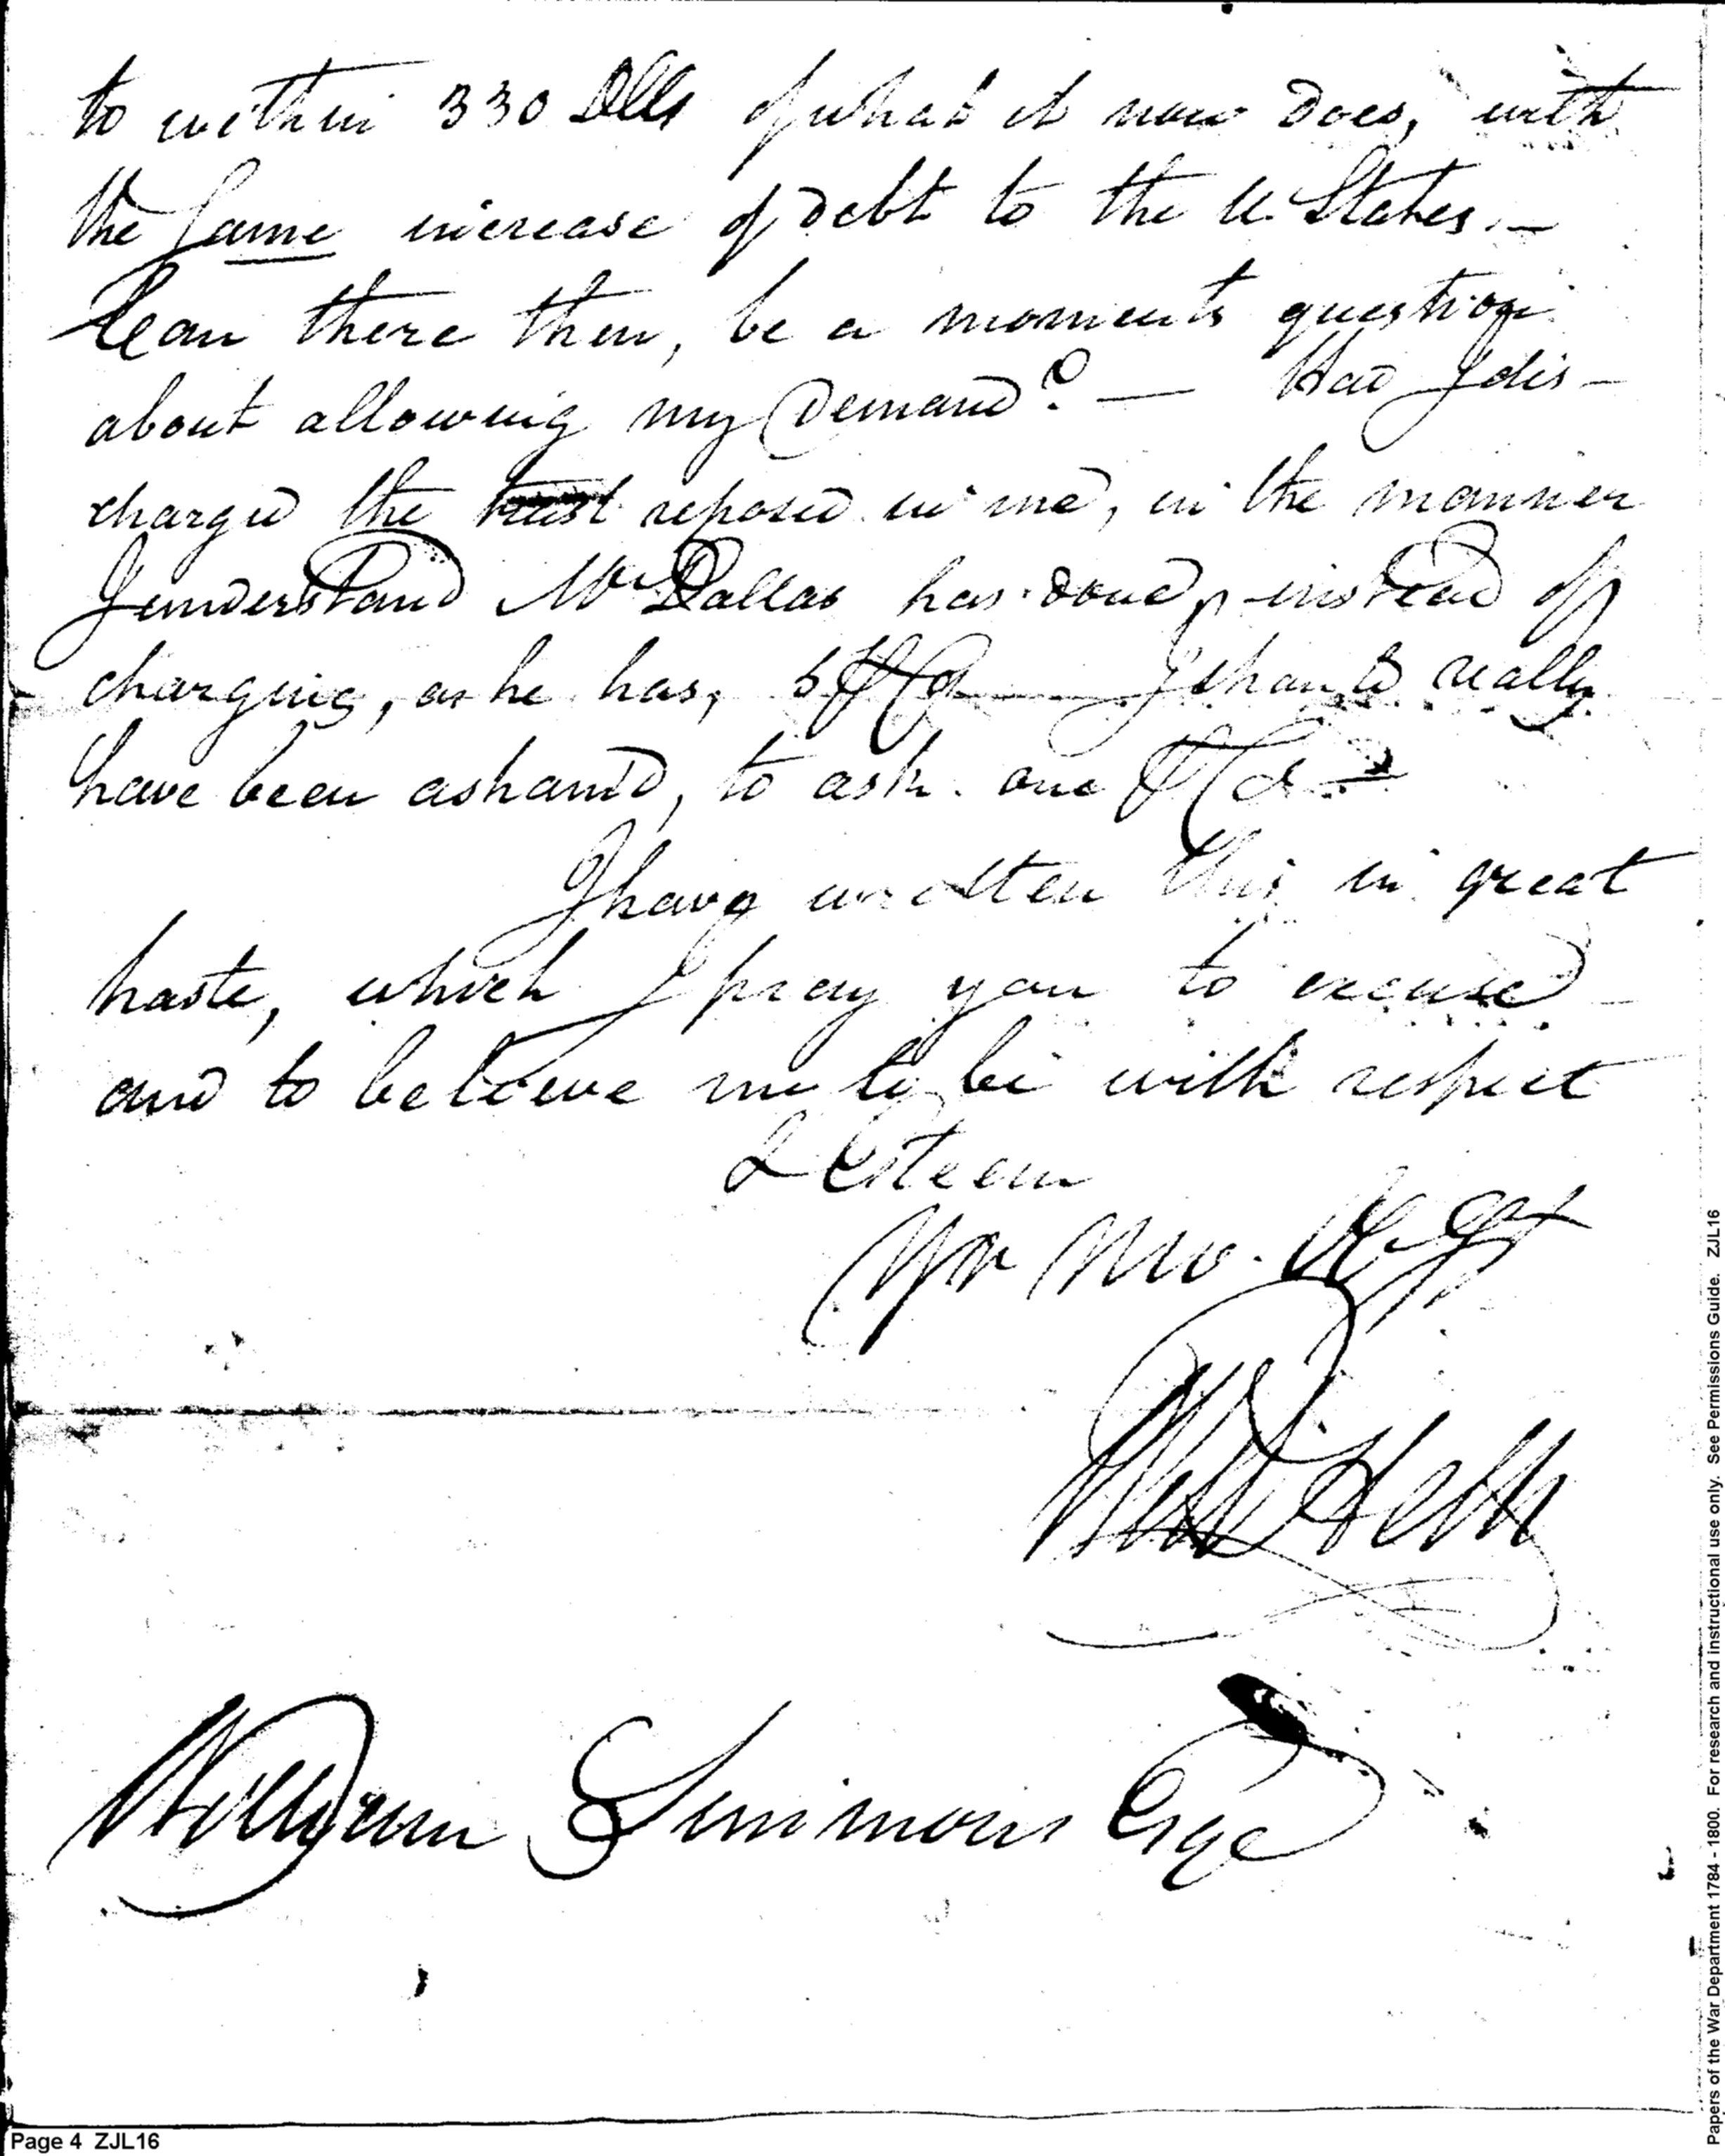 to within 330 Dlls of what it now does, with
the same increase of debt to the U. States.—
Can there then, be a moments question
about allowing my Demand? — Had I dis-
charged the trust reposed in me, in the manner
I understand Mr Dallas has done, instead of
charging, as he has, 5 P Ct — I should really
have been asham'd, to ask one P Ct —
I have written this in great
haste, which I pray you to excuse —
and to believe me to be with respect
& Esteem
Yr Mo. Ob St
Will Heth
William Simmons Esqe
Page 4 ZJL16
Papers of the War Department 1784 - 1800. For research and instructional use only. See Permissions Guide. ZJL16